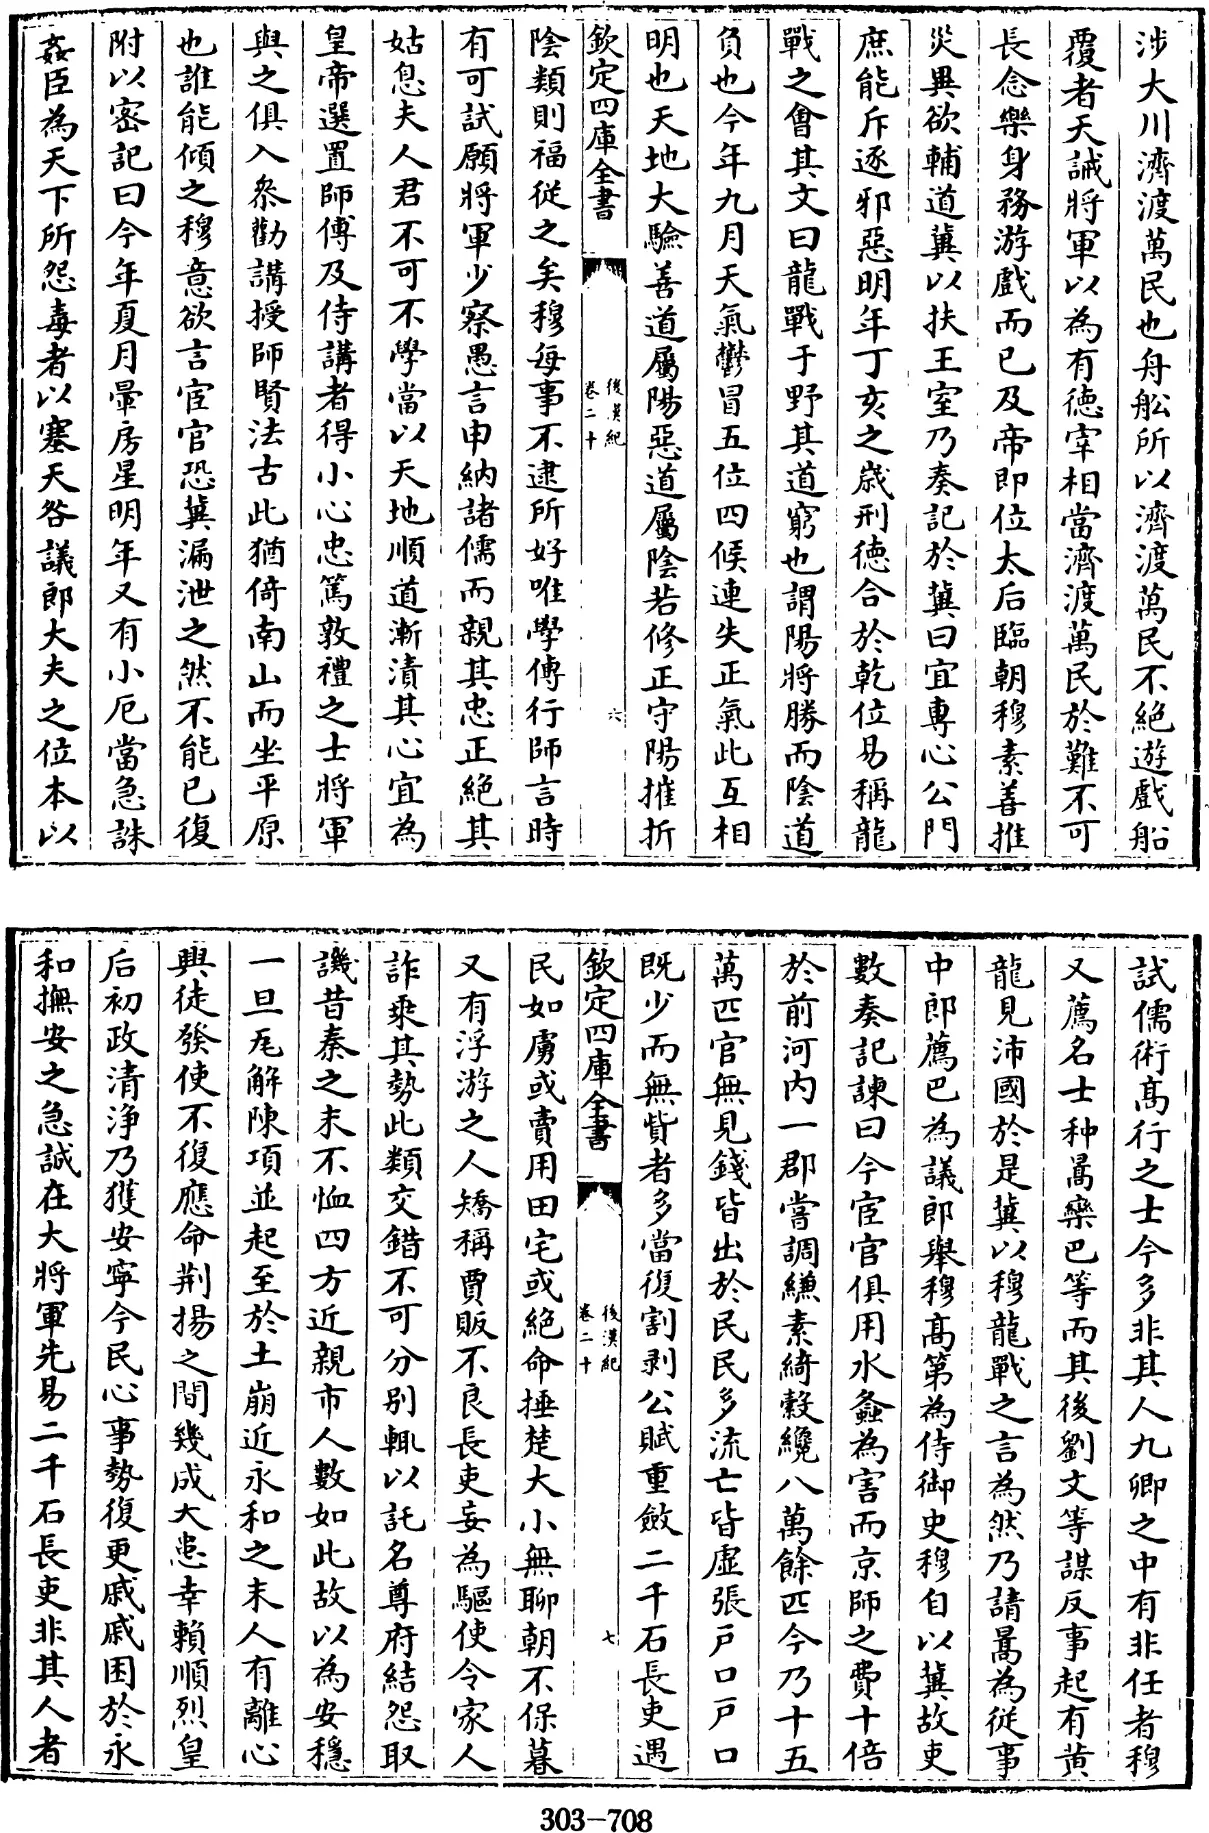 涉大川濟渡萬民也舟舩所以濟渡萬民不絕遊戲船
覆者天誡將軍以為有德宰相當濟渡萬民於難不可
長念樂身務游戲而已及帝即位太后臨朝穆素善推
災異欲輔道冀以扶王室乃奏記於冀曰宜專心公門
庶能斥逐邪惡明年丁亥之歲刑德合於乾位易稱龍
戰之會其文曰龍戰于野其道窮也謂陽將勝而陰道
負也今年九月天氣鬱冒五位四候連失正氣此互相
明也天地大驗善道屬陽惡道屬陰若修正守陽摧折
欽定四庫全書
後漢紀
卷二十
六
陰類則福從之矣穆每事不逮所好唯學傅行師言時
有可試願將軍少察愚言申納諸儒而親其忠正絕其
姑息夫人君不可不學當以天地順道漸漬其心宜為
皇帝選置師傅及侍講者得小心忠篤敦禮之士將軍
與之俱入參勸講授師賢法古此猶倚南山而坐平原
也誰能傾之穆意欲言宦官恐冀漏泄之然不能已復
附以密記曰今年夏月暈房星明年又有小厄當急誅
姦臣為天下所怨毒者以塞天咎議郎大夫之位本以
試儒術高行之士今多非其人九卿之中有非任者穆
又薦名士种暠欒巴等而其後劉文等謀反事起有黃
龍見沛國於是冀以穆龍戰之言為然乃請暠為從事
中郎薦巴為議郎舉穆高第為侍御史穆自以冀故吏
數奏記諫曰今宦官俱用水螽為害而京師之費十倍
於前河內一郡嘗調縑素綺縠纔八萬餘匹今乃十五
萬匹官無見錢皆出於民民多流亡皆虛張戶口戶口
既少而無貲者多當復割剥公賦重斂二千石長吏遇
欽定四庫全書
後漢紀
卷二十
七
民如虜或賣用田宅或絕命捶楚大小無聊朝不保暮
又有浮游之人矯稱賈販不良長吏妄為驅使令家人
詐乘其勢此類交錯不可分別輒以託名尊府結怨取
譏昔秦之末不恤四方近親市人數如此故以為安穩
一旦瓦解陳項並起至於土崩近永和之末人有離心
興徒發使不復應命荆揚之間幾成大患幸賴順烈皇
后初政清淨乃獲安寧今民心事勢復更戚戚困於永
和撫安之急誠在大將軍先易二千石長吏非其人者
303-708